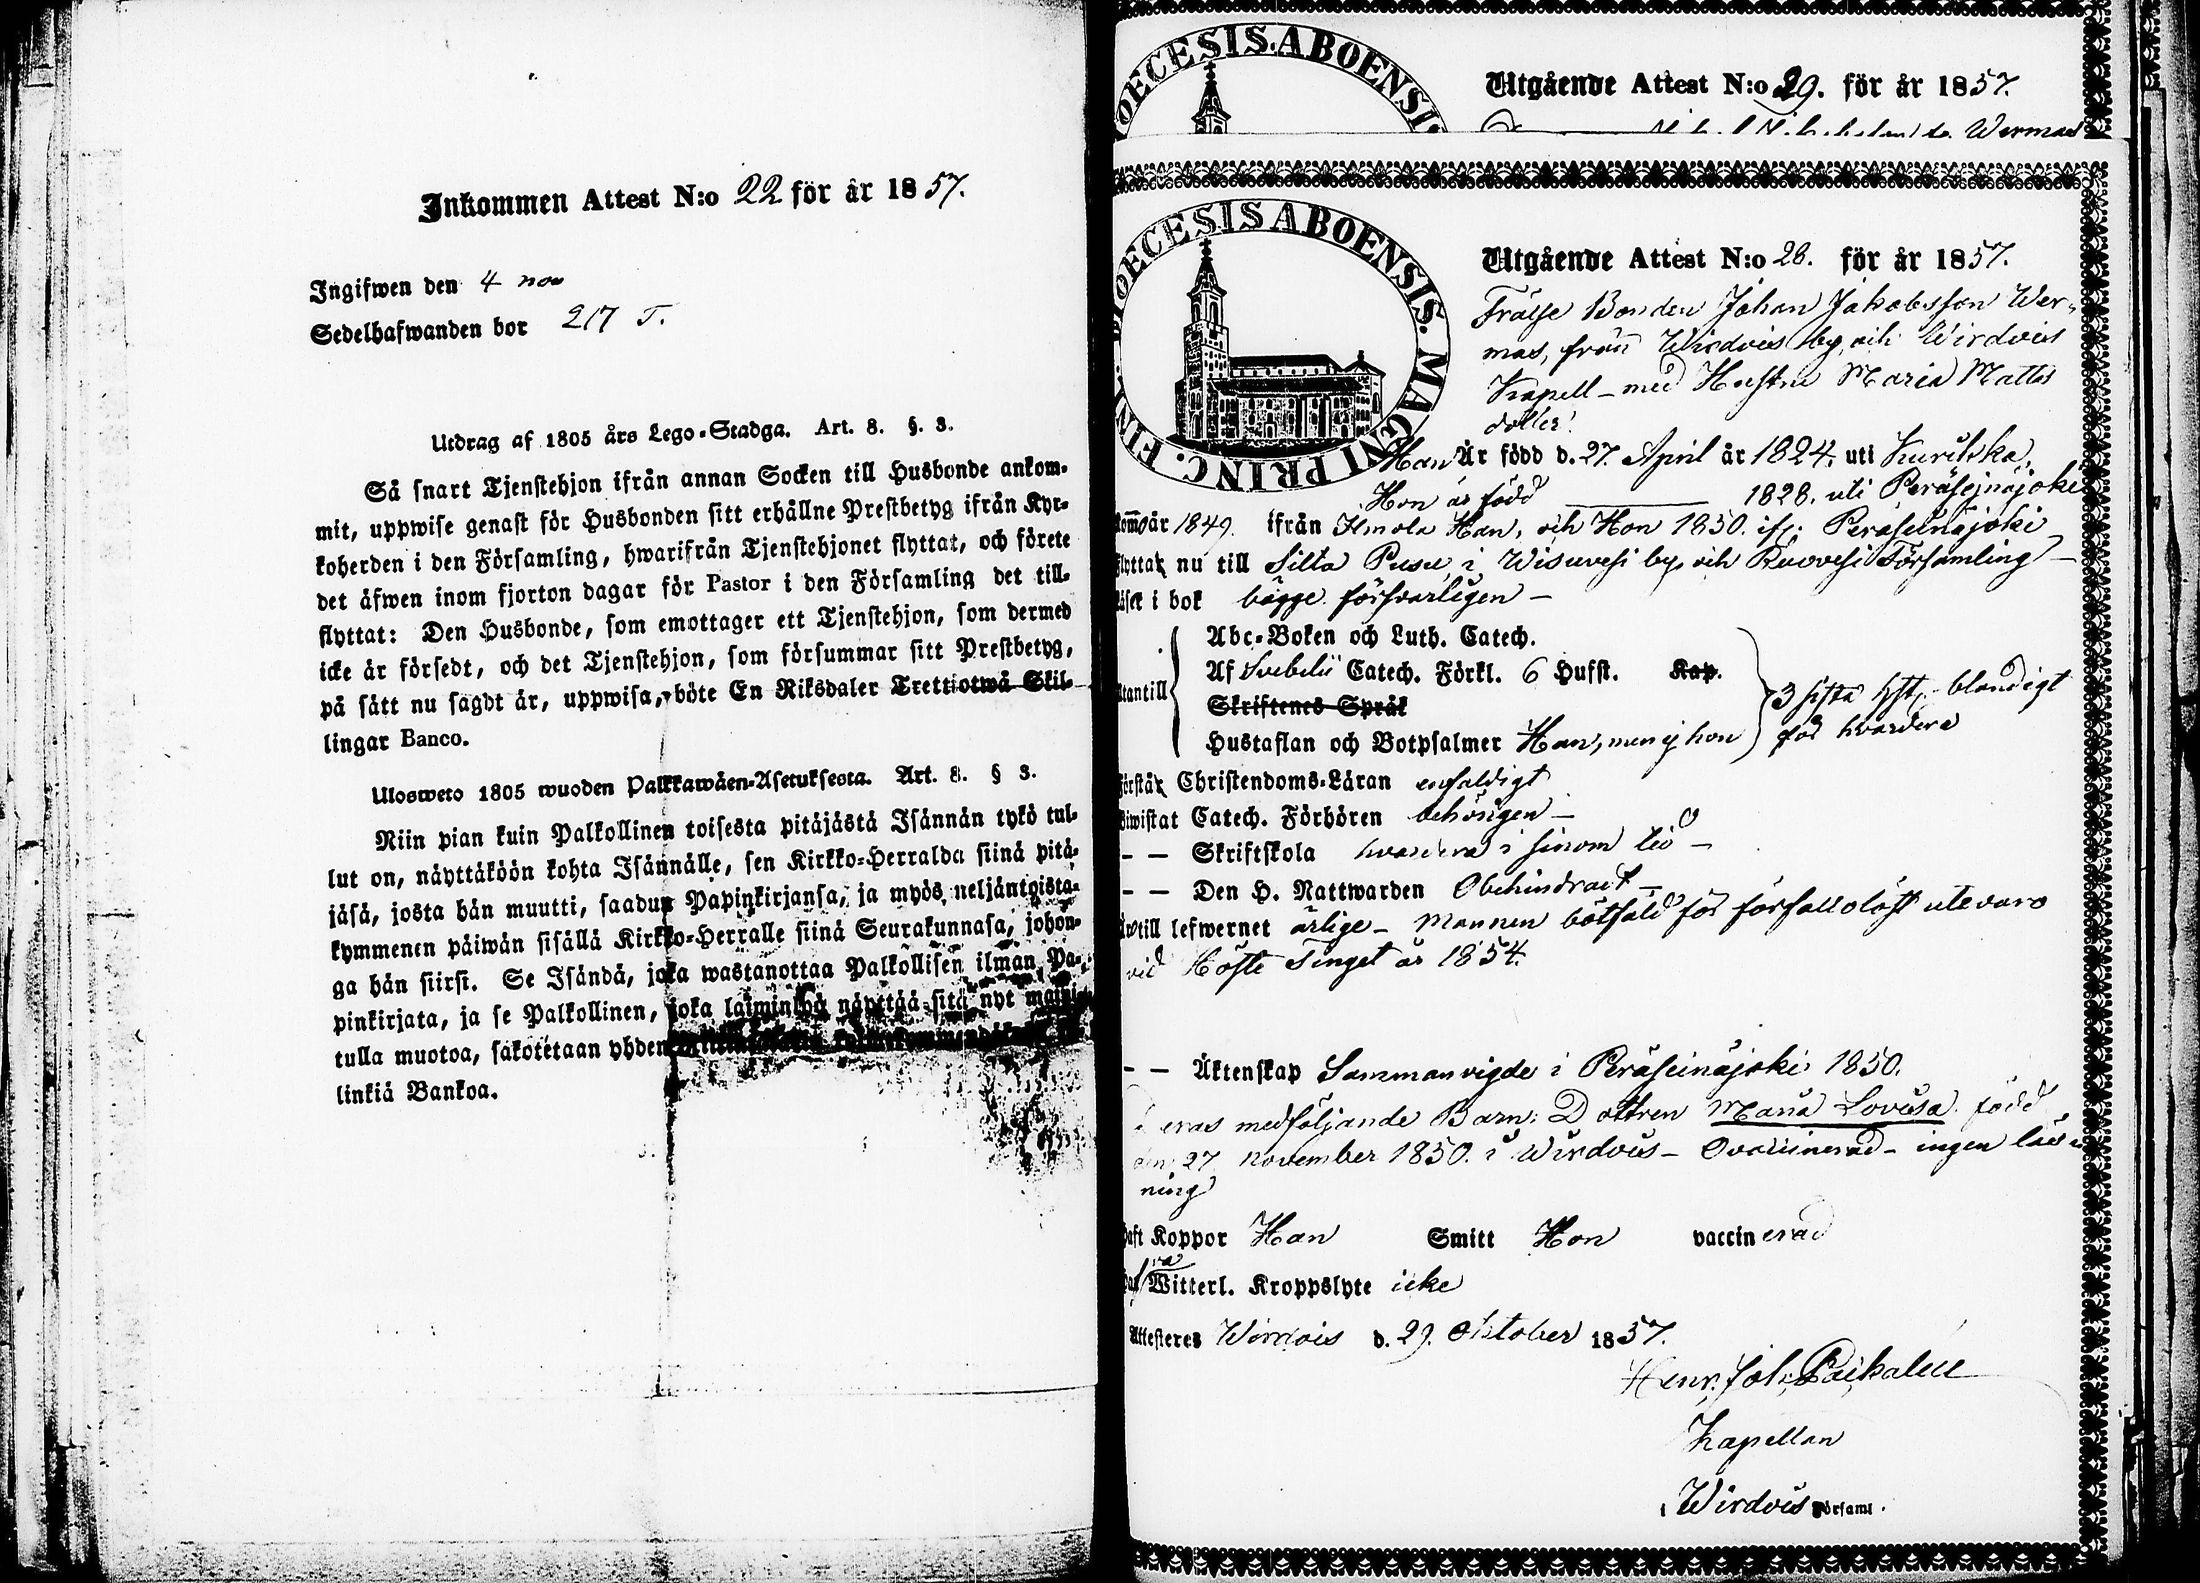 Inkommen Attest N:o 22 för år 1857.
Ingifwen den 4 nov
Sedelhafwanden bor 217 T.
Utdrag af 1805 års Lego-Stadga. Art. 8. §. 3.
Så snart Tjenstehjon ifrån annan Socken till Husbonde ankom-
mit, uppwise genast för Husbonden sitt erhållne Prestbetyg ifrån Kyr-
koherden i den Församling, hwarifrån Tjenstehjonet flyttat, och förete
det äfwen inom fjorton dagar för Pastor i den Församling det till-
flyttat: Den Husbonde, som emottager ett Tjenstehjon, som dermed
icke är försedt, och det Tjenstehjon, som försummar sitt Prestbetyg,
på sätt nu sagdt är, uppwisa, böte En Riksdaler Trettiotwå Skil-
lingar Banco.
Ulosweto 1805 wuoden Palkkawäen-Asetuksesta. Art. 8. § 3.
Niin pian kuin Palkollinen toisesta pitäjästä Isännän tykö tul-
lut on, näyttäköön kohta Isännälle, sen Kirkko-Herralda siinä pitä-
jäsä, josta hän muutti, saadun Papinkirjansa, ja myös neljäntoista-
kymmenen päiwän sisällä Kirkko-Herralle siinä Seurakunnasa, johon-
ga hän siirsi. Se Isändä, joka wastanottaa Palkollisen ilman Pa-
pinkirjata, ja se Palkollinen, joka laiminlyö näyttää sitä nyt maini-
tulla muotoa, sakotetaan yhden
linkiä Bankoa.
DIOECESIS ABOENSIS.
Utgående Attest N:o 29. för år 1857.
Wermas
DIOECESIS ABOENSIS. MAGNI PRINC. FINL.
Utgående Attest N:o 28. för år 1857.
Frälse Bonden Johan Jakobsson Wer-
mas, från Wirdois by och Wirdois
Kapell - med Hustru Maria Matts
dotter.
Han Är född d. 27. April år 1824. uti Kurikka.
Hon är född 1828. uti Peräseinäjoki
Kommo år 1849. ifrån Ilmola Han, och Hon 1850. ifr. Peräseinäjoki
flyttat nu till Silta Pusu, i Wisuvesi by och Ruovesi Församling -
Läser i bok bägge försvarligen -
Utantill
Abc-Boken och Luth. Catech.
Af Svebelii Catech. Förkl. 6 Hufst. Kap.
Skriftenes Språk
Hustaflan och Botpsalmer Han, men ej hon
3 sista hst. blandigt
för hvardera
Förstår Christendoms-Läran enfaldigt
Biwistat Catech. Förhören behörigen -
- - Skriftskola hvardera i sinom tid -
- - Den H. Nattwarden Obehindradt -
Till lefwernet ärlige - Mannen bötfäld för förfallolöst utevaro
vid Höste Tinget år 1854.
- - Äktenskap Sammanvigde i Peräseinäjoki 1850.
Deras medföljande Barn: Dottren Maria Lovisa född
den 27 november 1850. i Wirdois - Ovaccinerad - ingen läs-
ning
Haft Koppor Han Smitt Hon vaccinerad
Witterl. Kroppslyte icke
Attesteres Wirdois d. 29. Oktober 1857.
Kapellan
i Wirdois Församl.